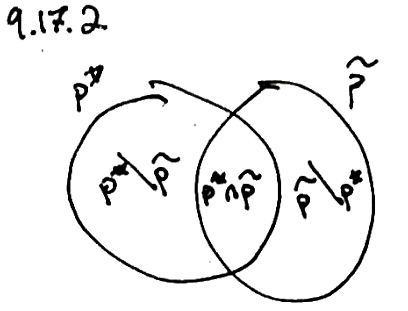 9.17.2
p* p̃
p*\p̃ p*∩p̃ p̃\p*